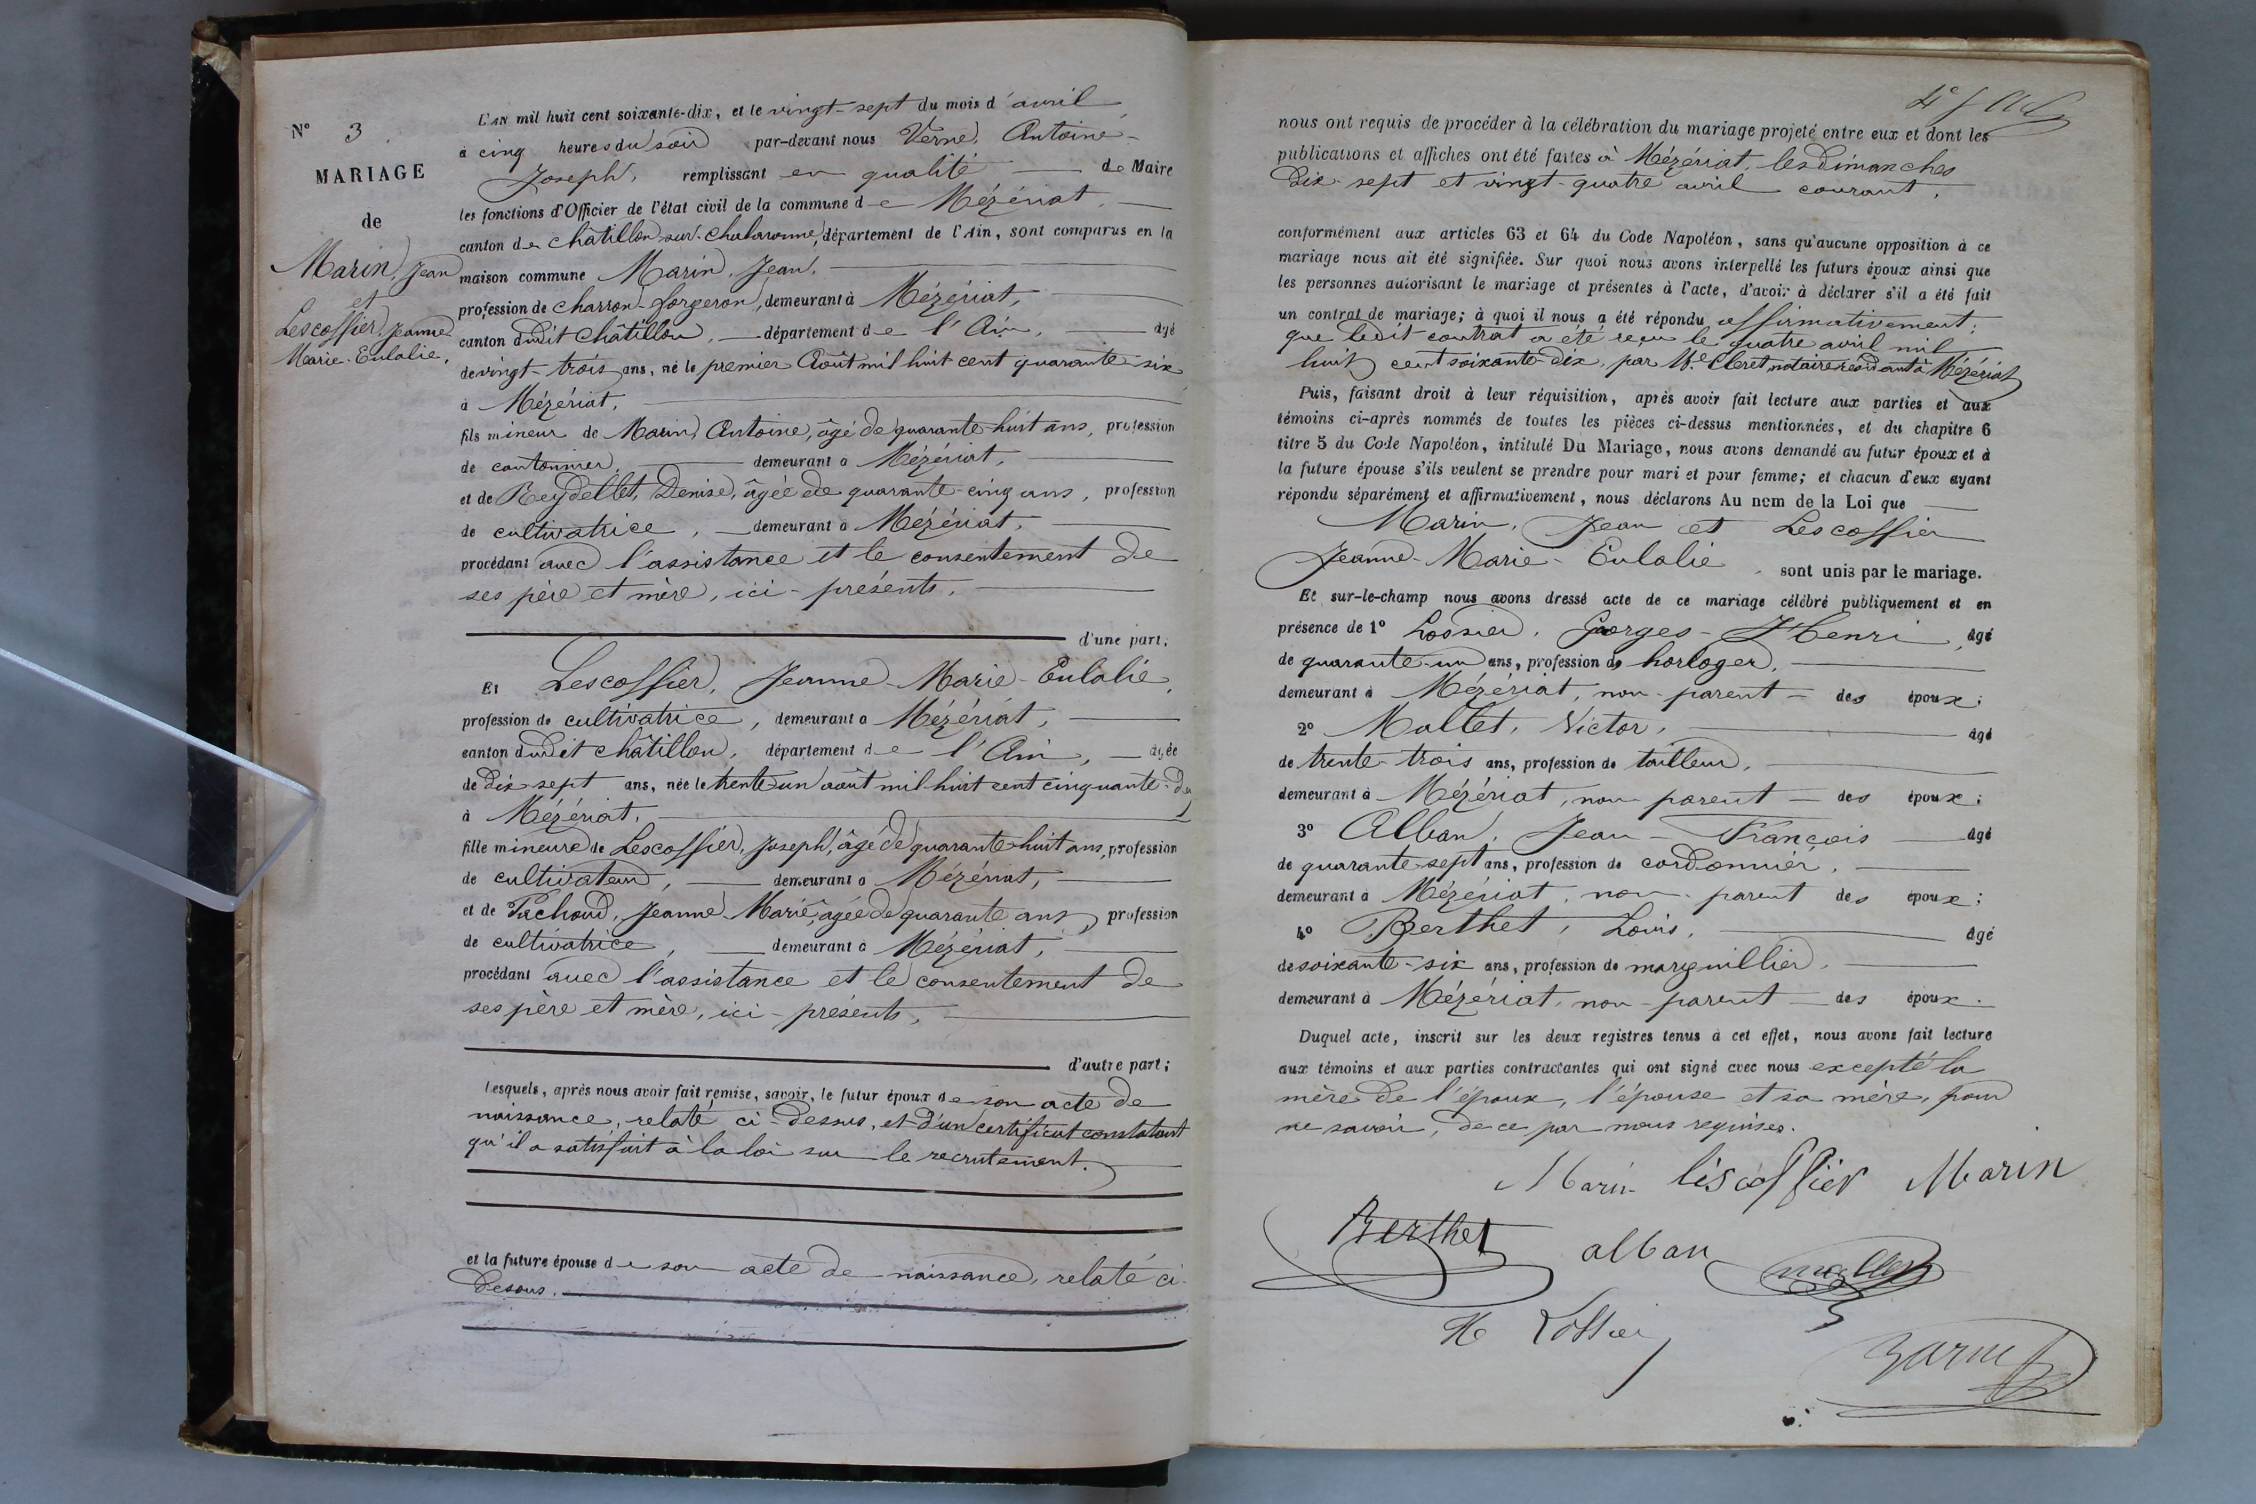 N° 3
MARIAGE
de
Marin, Jean
et
Lescoffier, Jeanne
Marie-Eulalie,
L'AN mil huit cent soixante-dix, et le vingt-sept du mois d'avril
à cinq heures du soir par-devant nous Verne, Antoine-
Joseph, remplissant en qualité de Maire
les fonctions d'Officier de l'état civil de la commune de Mézériat,
canton de Châtillon-sur-Chalaronne, département de l'Ain, sont comparus en la
maison commune Marin, Jean,
profession de charron-forgeron, demeurant à Mézériat,
canton dudit Châtillon, département de l'Ain, âgé
de vingt-trois ans, né le premier Août mil huit cent quarante-six
à Mézériat,
fils mineur de Marin, Antoine, âgé de quarante-huit ans, profession
de cantonnier, demeurant à Mézériat,
et de Reydellet, Denise, âgée de quarante-cinq ans, profession
de cultivatrice, demeurant à Mézériat,
procédant avec l'assistance et le consentement de
ses père et mère, ici-présents,
d'une part;
Et Lescoffier, Jeanne-Marie-Eulalie,
profession de cultivatrice, demeurant à Mézériat,
canton dudit Châtillon, département de l'Ain, âgée
de dix-sept ans, née le trente-un août mil-huit cent cinquante-deux
à Mézériat,
fille mineure de Lescoffier, Joseph, âgé de quarante-huit ans, profession
de cultivateur, demeurant à Mézériat,
et de Pachoud, Jeanne-Marie, âgée de quarante ans, profession
de cultivatrice, demeurant à Mézériat,
procédant avec l'assistance et le consentement de
ses père et mère, ici-présents,
d'autre part;
Lesquels, après nous avoir fait remise, savoir, le futur époux de son acte de
naissance, relaté ci-dessus, et d'un certificat constatant
qu'il a satisfait à la loi sur le recrutement.
et la future épouse de son acte de naissance, relaté ci-
dessus.
nous ont requis de procéder à la célébration du mariage projeté entre eux et dont les
publications et affiches ont été faites à Mézériat, les dimanches
dix-sept et vingt-quatre avril courant,
conformément aux articles 63 et 64 du Code Napoléon, sans qu'aucune opposition à ce
mariage nous ait été signifiée. Sur quoi nous avons interpellé les futurs époux ainsi que
les personnes autorisant le mariage et présentes à l'acte, d'avoir à déclarer s'il a été fait
un contrat de mariage; à quoi il nous a été répondu affirmativement;
que ledit contrat a été reçu le quatre avril mil
huit cent soixante-dix, par Me Cleret, notaire résidant à Mézériat
Puis, faisant droit à leur réquisition, après avoir fait lecture aux parties et aux
témoins ci-après nommés de toutes les pièces ci-dessus mentionnées, et du chapitre 6
titre 5 du Code Napoléon, intitulé Du Mariage, nous avons demandé au futur époux et à
la future épouse s'ils veulent se prendre pour mari et pour femme; et chacun d'eux ayant
répondu séparément et affirmativement, nous déclarons Au nom de la Loi que
Marin, Jean et Lescoffier
Jeanne-Marie-Eulalie, sont unis par le mariage.
Et sur-le-champ nous avons dressé acte de ce mariage célébré publiquement et en
présence de 1° Lossier, Georges-Henri, âgé
de quarante-un ans, profession de horloger,
demeurant à Mézériat, non-parent des époux;
2° Mallet, Victor, âgé
de trente-trois ans, profession de tailleur,
demeurant à Mézériat, non-parent des époux;
3° Alban, Jean-François âgé
de quarante-sept ans, profession de cordonnier,
demeurant à Mézériat, non-parent des époux;
4° Berthet, Louis, âgé
de soixante-six ans, profession de marguillier,
demeurant à Mézériat, non-parent des époux.
Duquel acte, inscrit sur les deux registres tenus à cet effet, nous avons fait lecture
aux témoins et aux parties contractantes qui ont signé avec nous excepté la
mère de l'époux, l'épouse et sa mère, pour
ne savoir, de ce par nous requises.
Marin Lescoffier Marin
Berthet alban mallet
H Lossier
Verne